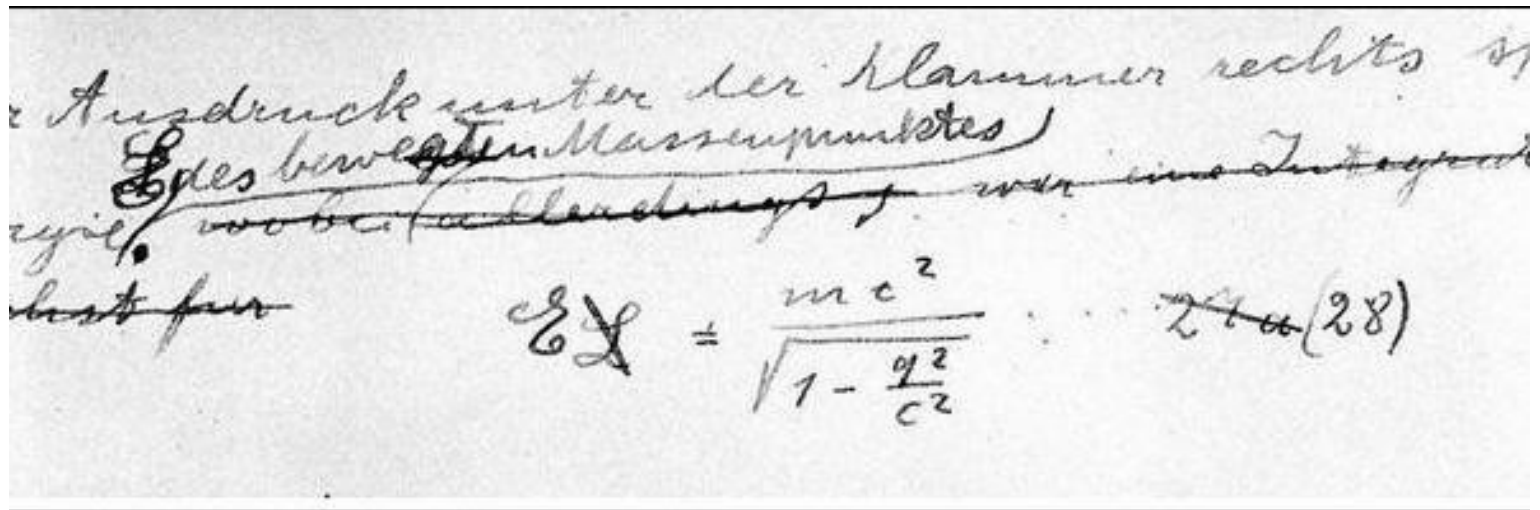 r Ausdruck unter der Klammer rechts
E des bewegten Massenpunktes)
rgie. wobei (allerdings, war eine Integrat
chst fur
E L = mc² / √(1 - q²/c²) . . . . (28)